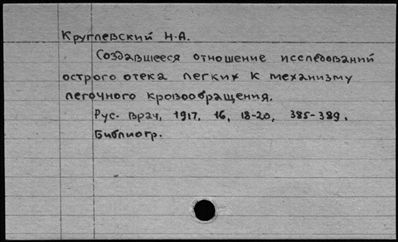 Круглевский Н.А.
Создавшееся отношение исследований
острого отека легких к механизму
легочного кровообращения.
Рус. врач, 1917, 16, 18-20, 385-389.
Библиогр.